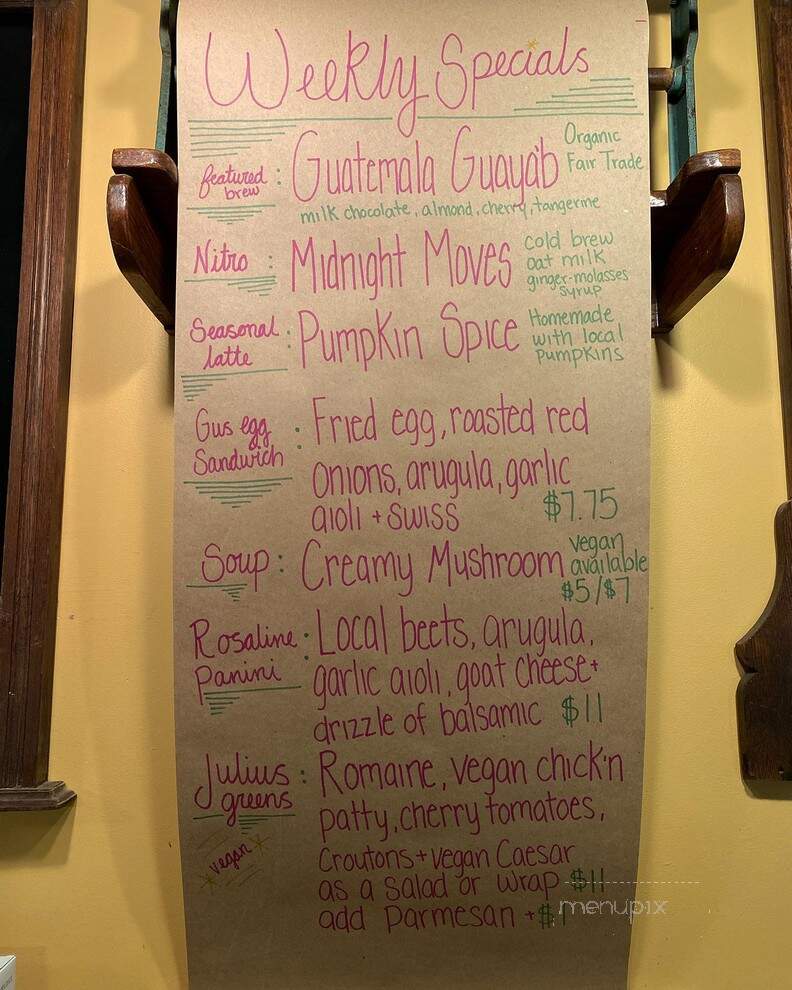 Weekly Specials
featured brew : Guatemala Guayab Organic Fair Trade
milk chocolate, almond, cherry, tangerine
Nitro : Midnight Moves cold brew oat milk ginger-molasses syrup
Seasonal latte : Pumpkin Spice Homemade with local pumpkins
Gus egg Sandwich : Fried egg, roasted red
onions, arugula, garlic
aioli + swiss $7.75
Soup : Creamy Mushroom vegan available $5/$7
Rosaline Panini : Local beets, arugula,
garlic aioli, goat cheese +
drizzle of balsamic $11
Julius greens : Romaine, vegan chick'n
patty, cherry tomatoes,
vegan
croutons + vegan Caesar
as a salad or wrap $11
add parmesan + $
menupix